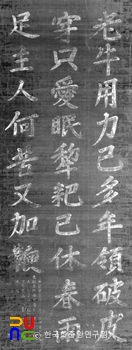 老牛用力已多年領破皮
穿只愛眠犂耙已休春雨
足主人何苦又加鞭
한국학중앙연구원